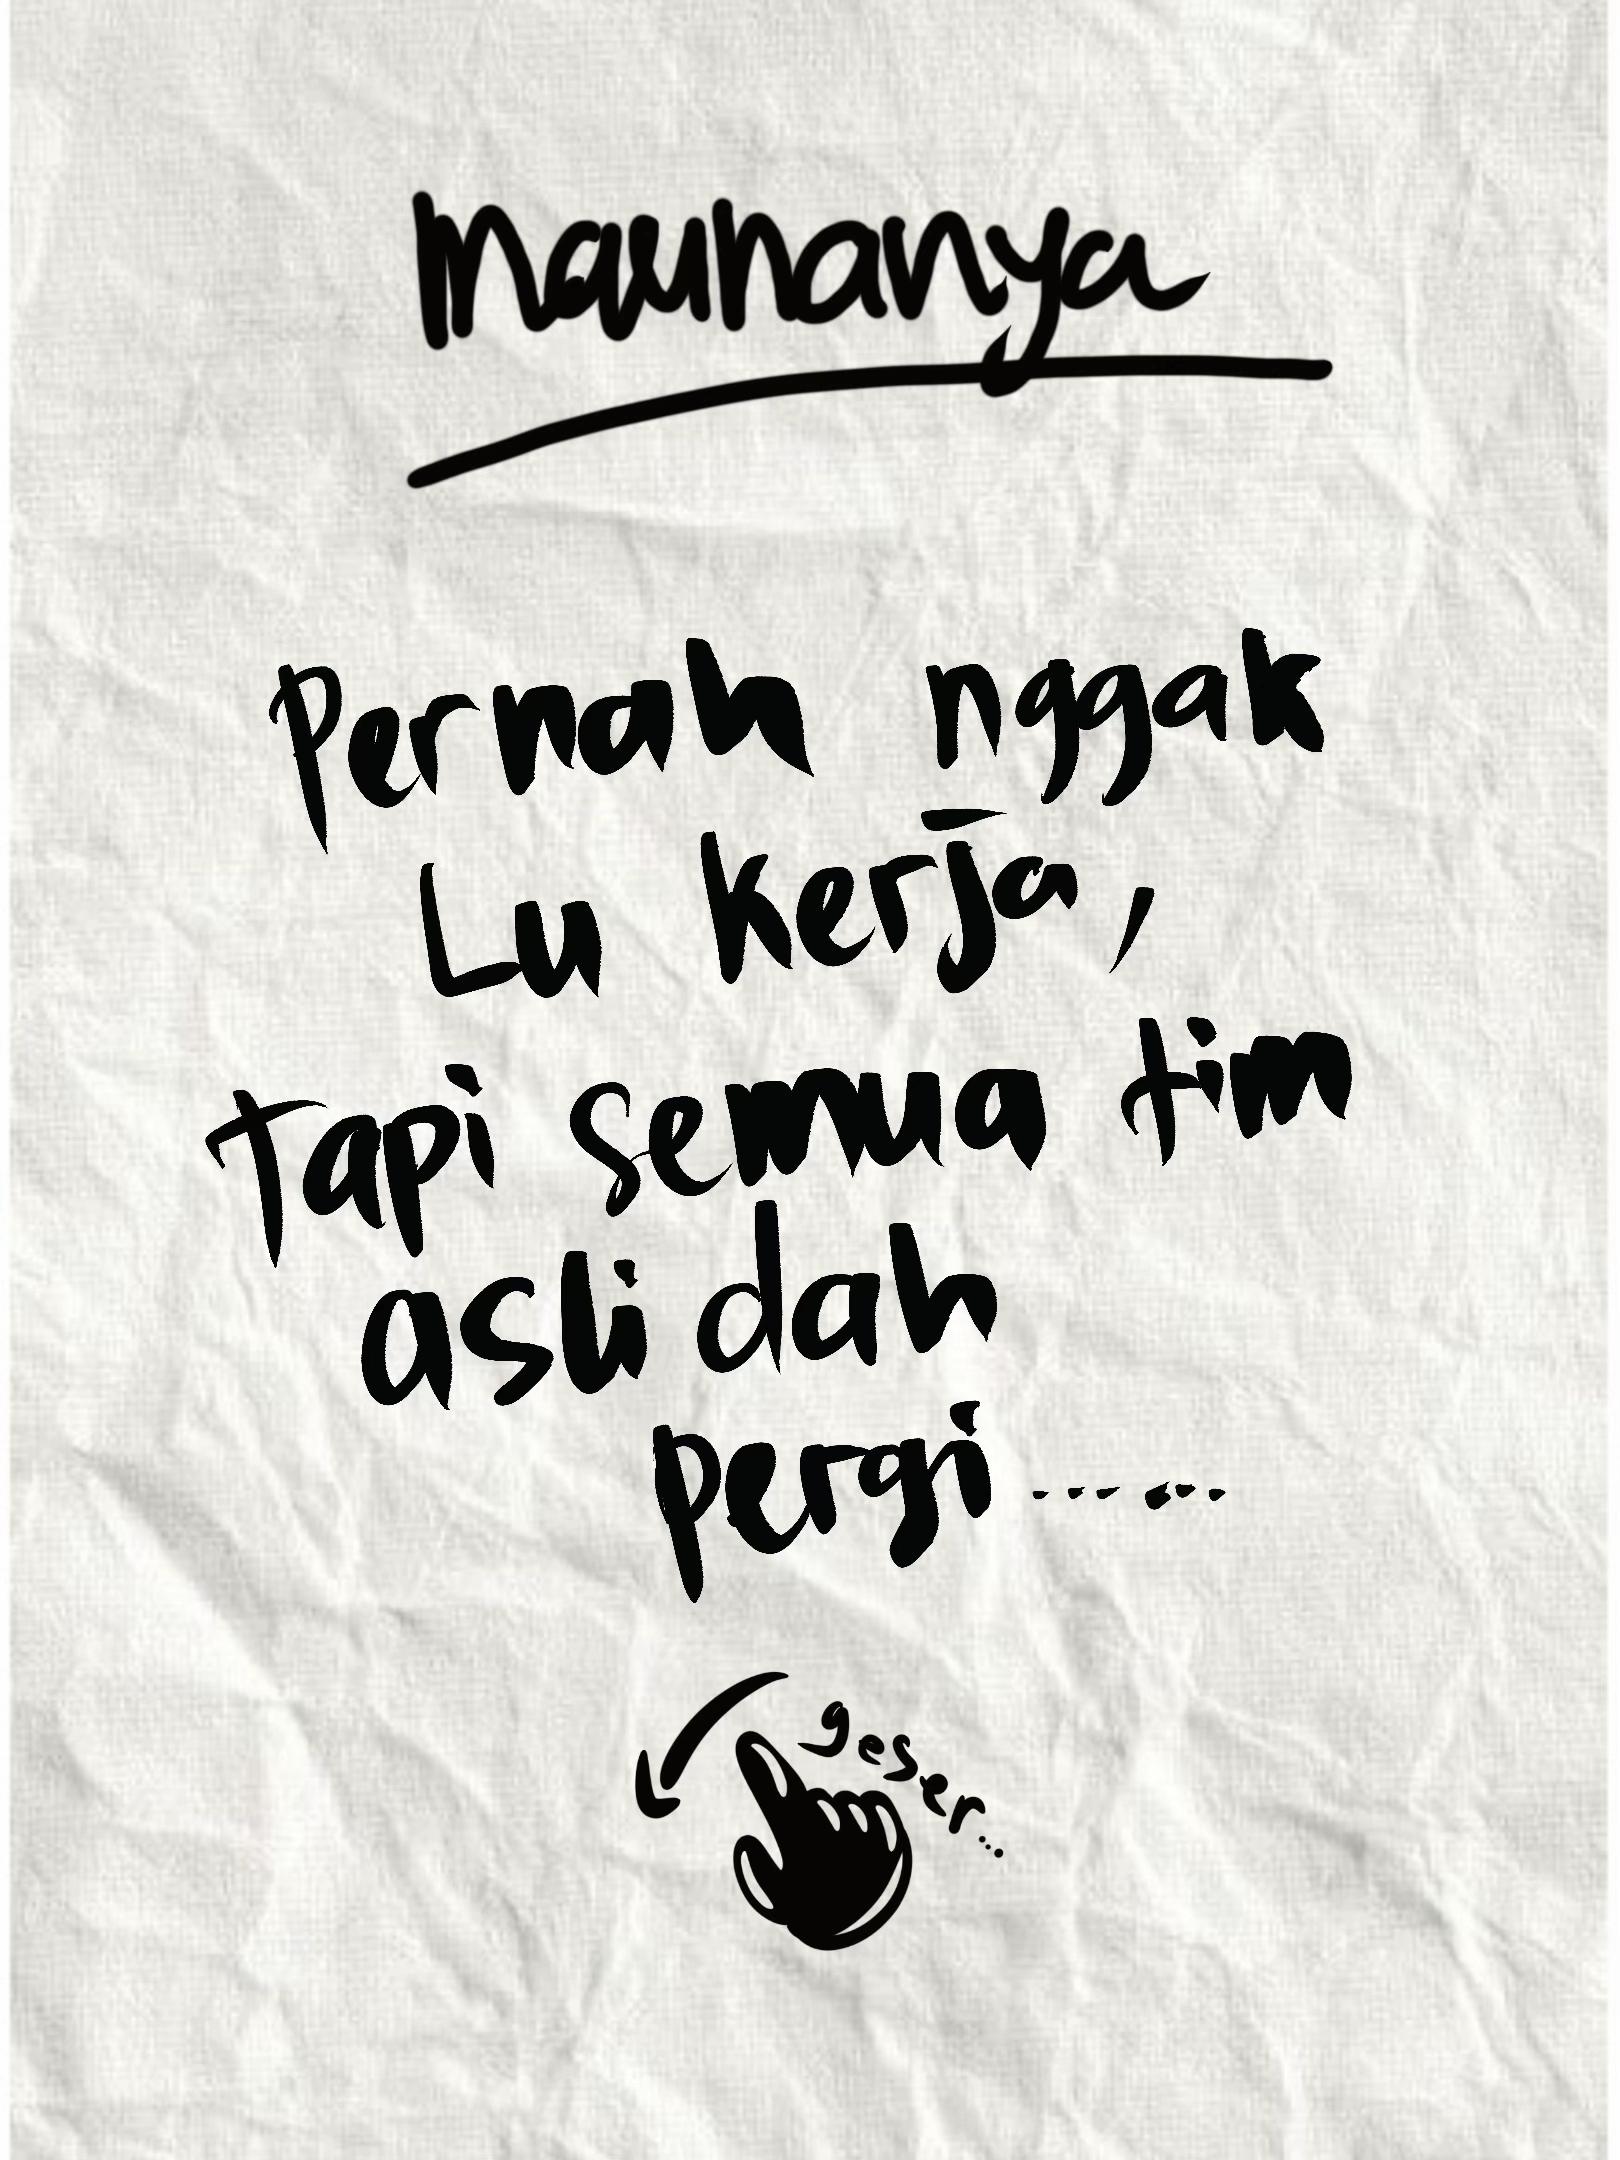 maunanya
Pernah nggak
Lu kerja,
Tapi semua tim
asli dah
pergi......
geser...